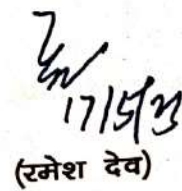 17/5/23
(रमेश देव)